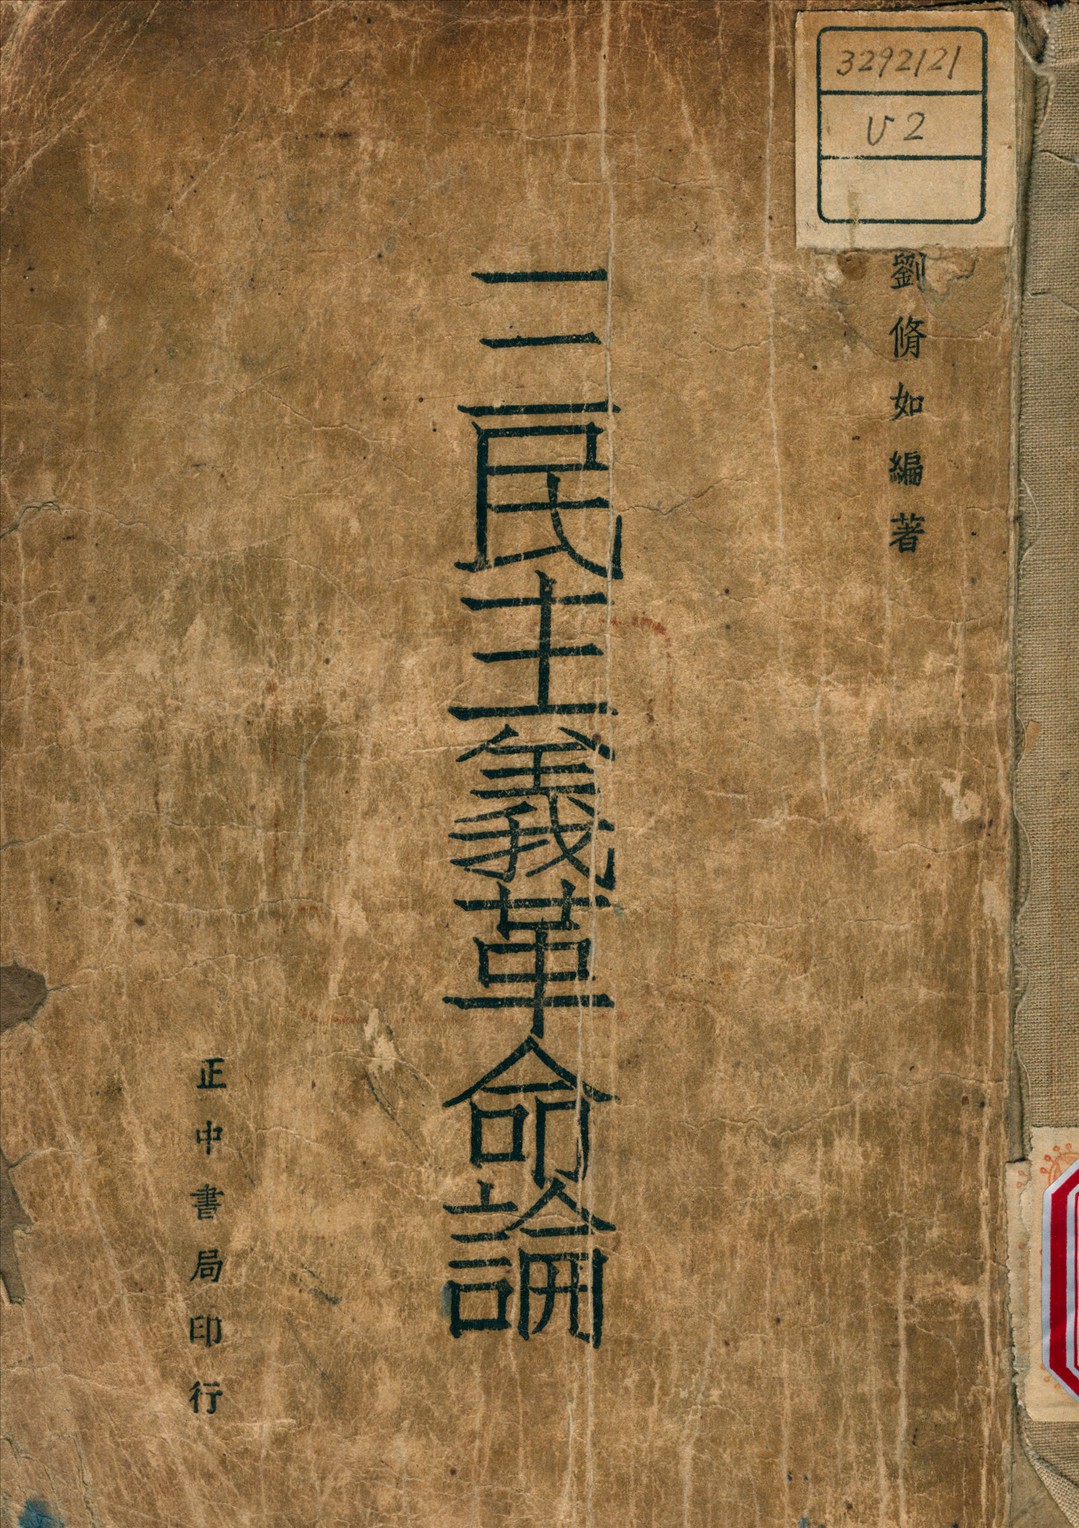 3292121
V2
劉脩如編著
三民主義革命論
正中書局印行